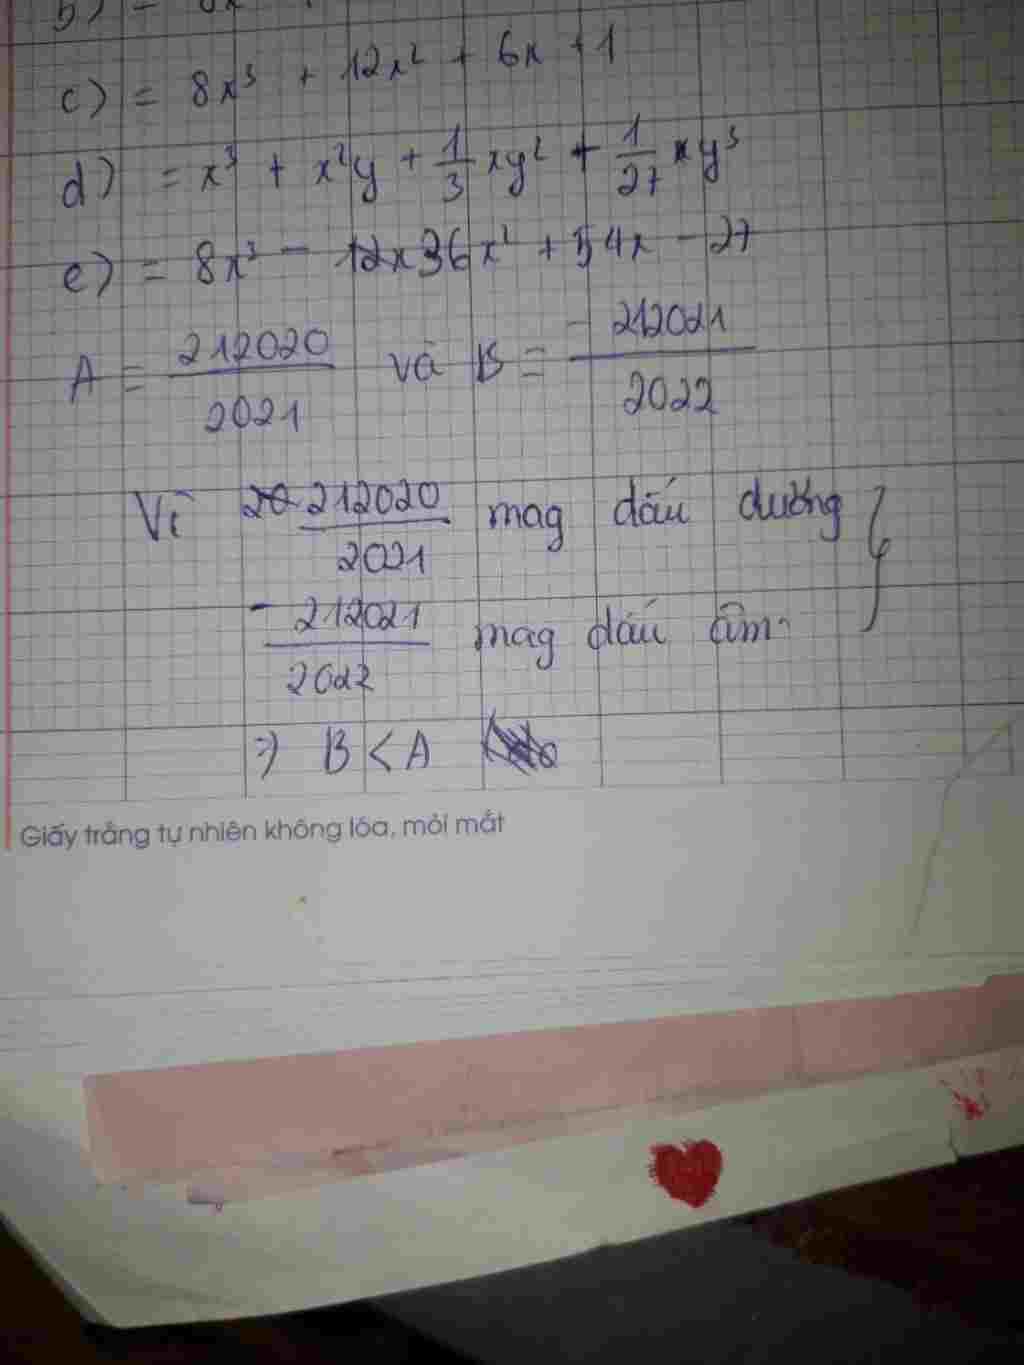 c) = 8x³ + 12x² + 6x + 1
d) = x³ + x²y + 1/3 xy² + 1/27 xy³
e) = 8x³ - 36x² + 54x - 27
A = 212020/2021 và B = -212021/2022
Vì 212020/2021 mag dấu dương
-212021/2022 mag dấu âm.
=> B < A
Giấy trắng tự nhiên không lóa, mỏi mắt